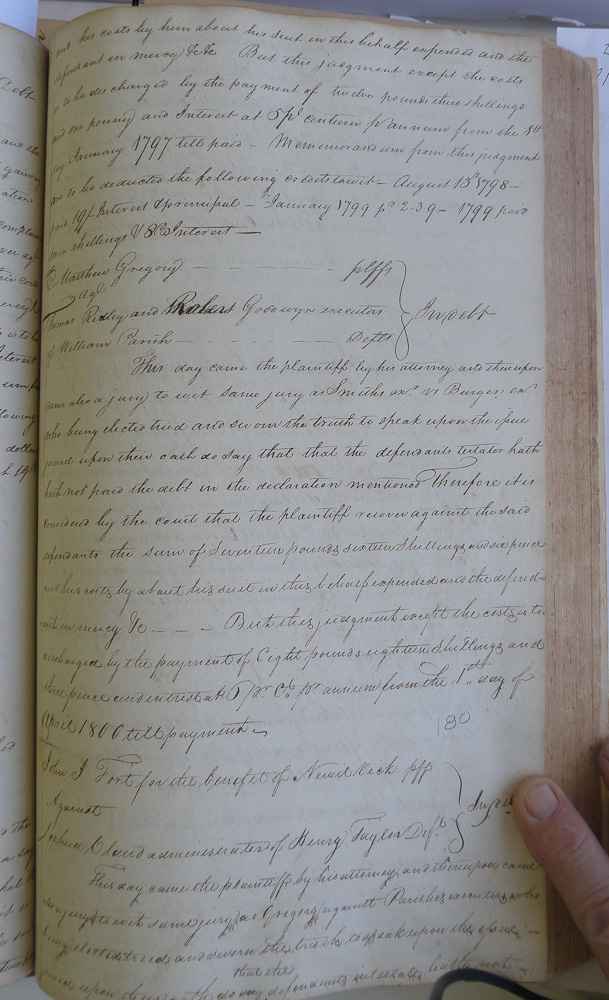 and his costs by him about his suit in this behalf expended and the
defendant in mercy &c &c But this judgment except the costs
is to be discharged by the payment of twelve pounds three shillings
and one penny and Interest at 5 pr centum pr annum from the
January 1797 till paid – Memorandum from this judgment
are to be deducted the following credits towit – August 13th 1798 –
paid 19/ Interest & principal – January 1799 pd 2-3-9 – 1799 paid
shillings Interest
Matthew Gregory plffs
agt
Thomas Ridley and Robert Goodwyn executors In debt
of William Parish Defts
This day came the plaintiff by his attorney and thereupon
came also a jury to wit same jury as Smiths exr vs Burgess exr
who being elected tried and sworn the truth to speak upon the issue
joined upon their oath do say that that the defendants testator hath
hath not paid the debt in the declaration mentioned Therefore it is
considered by the court that the plaintiff recover against the said
defendants the sum of Seventeen pounds sixteen Shillings and six pence
and his costs by about his suit in this behalf expended and the defend-
ant in mercy &c – – – But this judgment except the costs is to
discharged by the payment of Eight pounds eighteen shillings and
three pence and intrest at pr Ct. pr annum from the 1st day of
April 1800 till payment
180
John J Fort for the benefit of Newit Vick plff
Against
Claud administrator of Henry Taylor Deft In de
This day came the plaintiff by his attorney and thereupon came
also a jury to wit same jury as Gregory against Parishes executors who
being elected tried and sworn the truth to speak upon the issue –
that the
joined upon their oath do say defendants intestate hath not